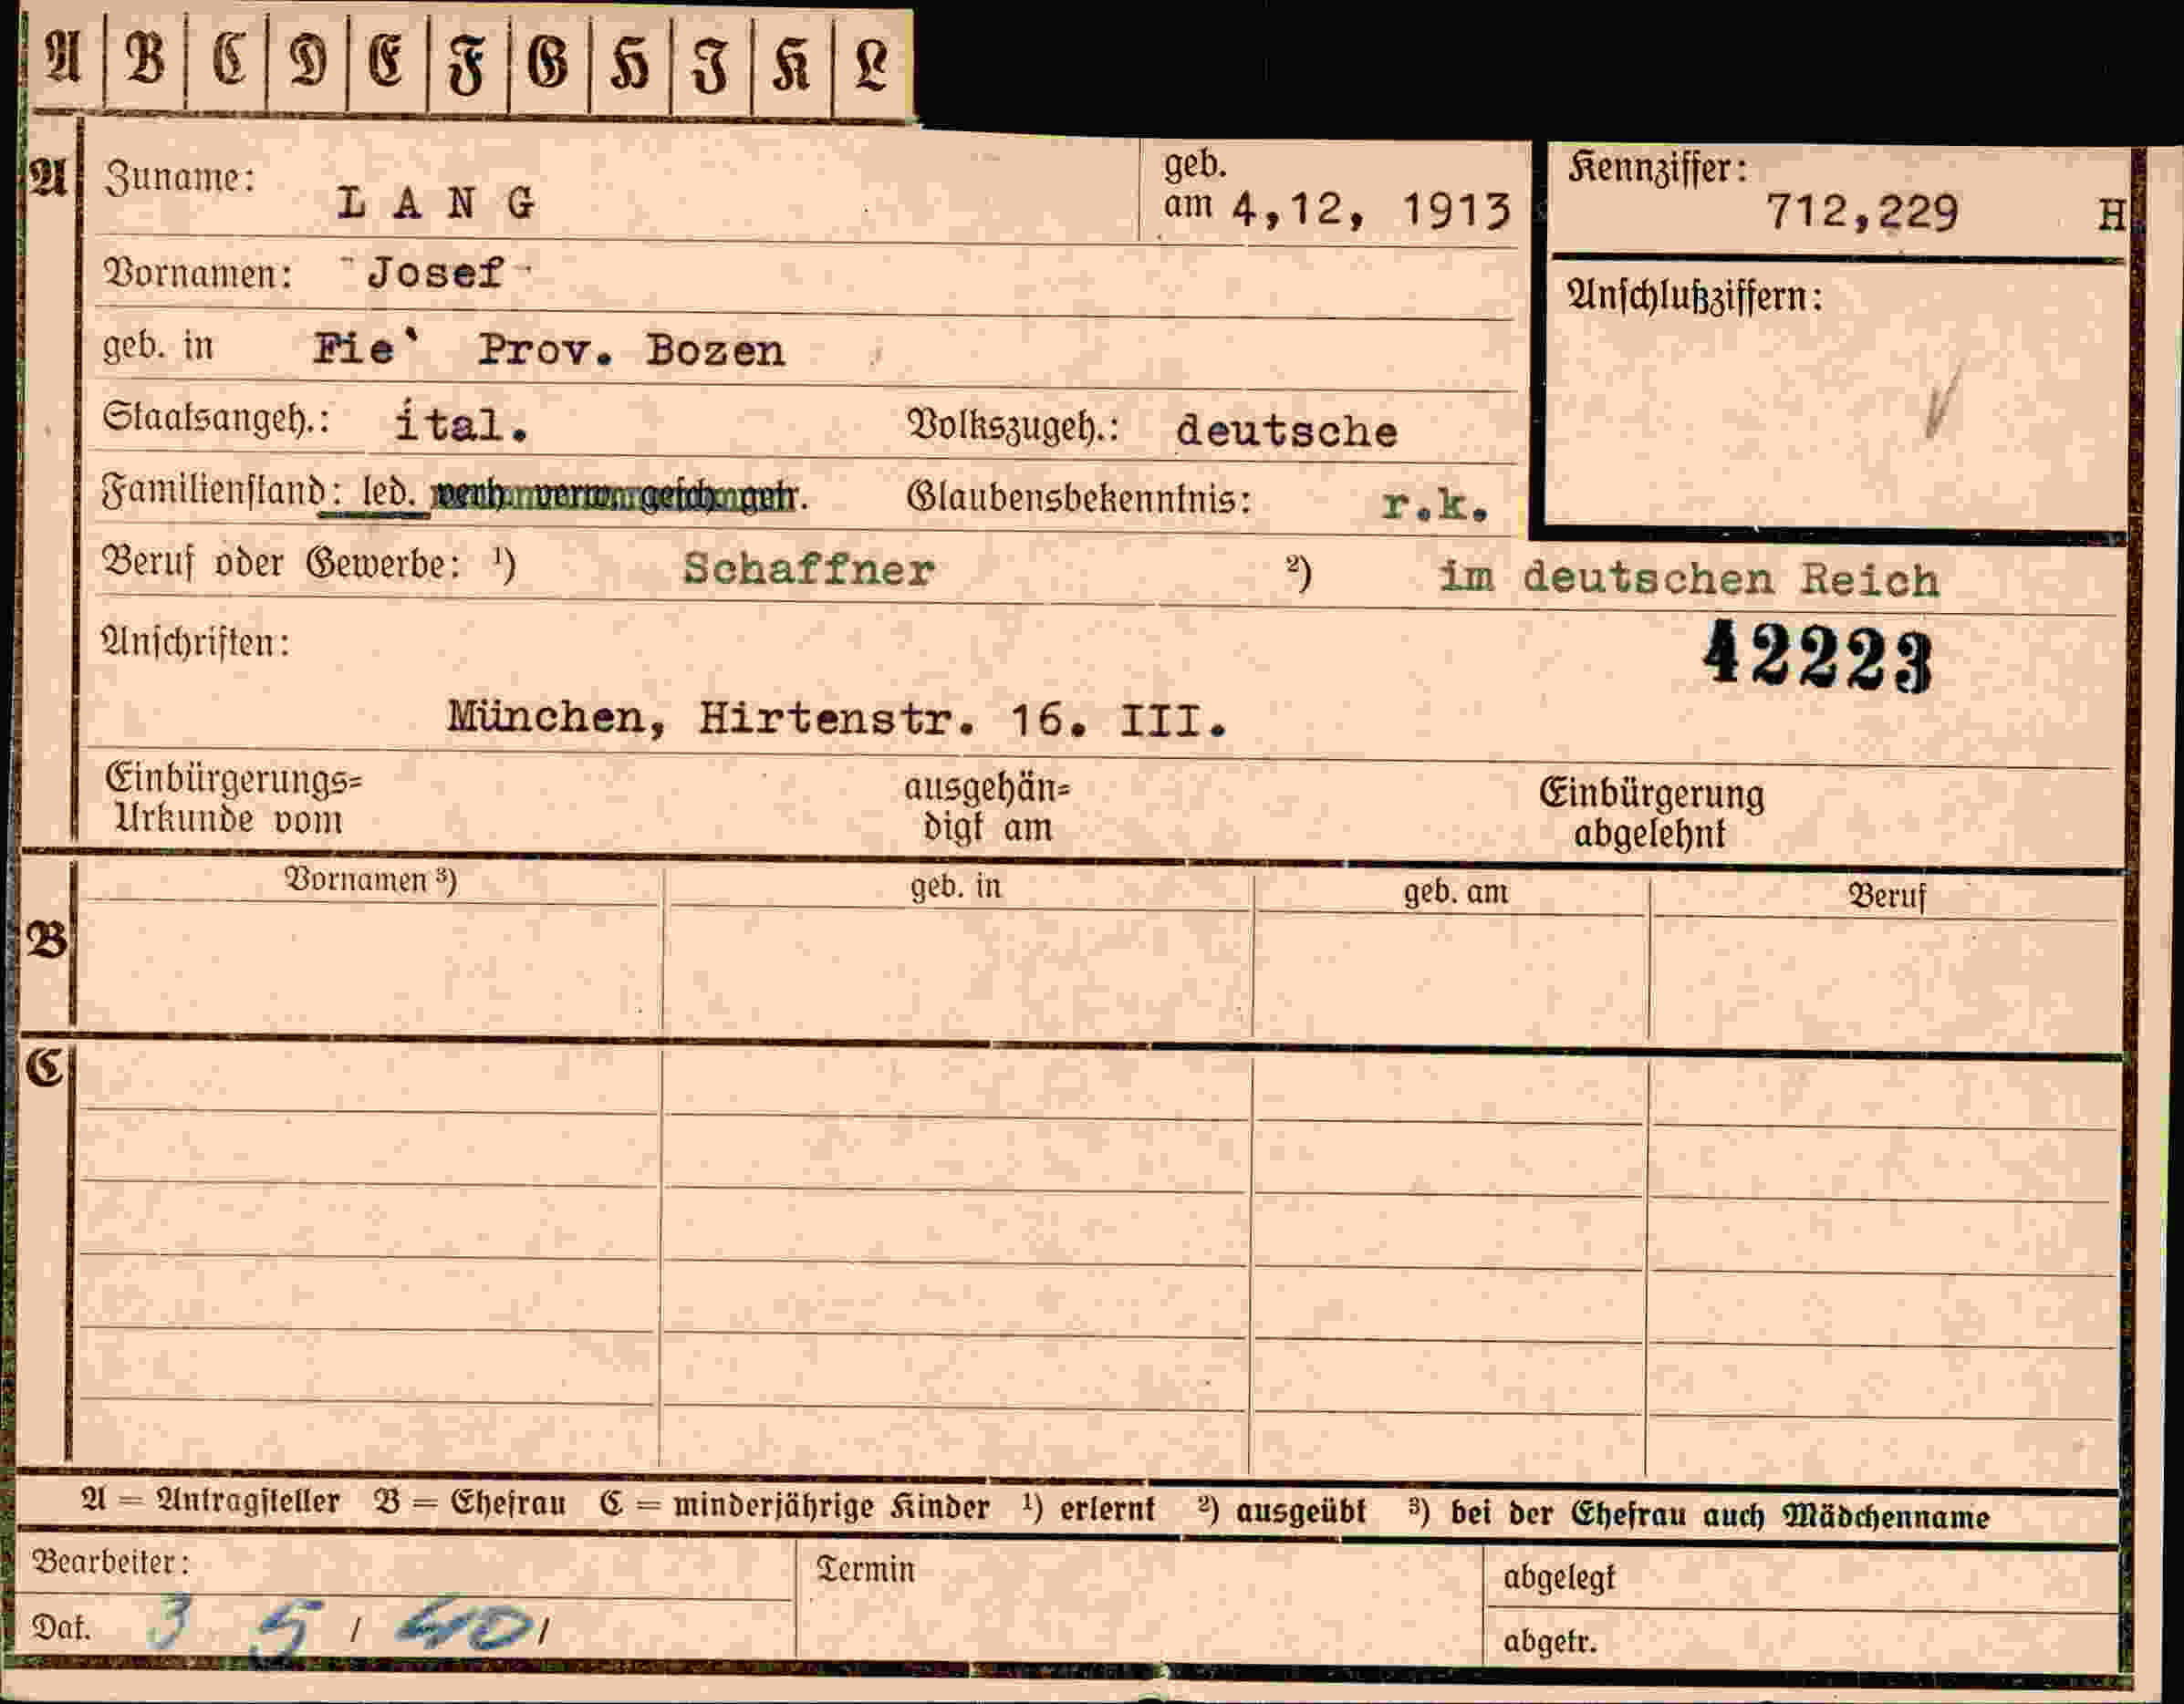 A B C D E F G H I K L
A Zuname: LANG geb. am 4,12, 1913 Kennziffer: 712,229 H
Vornamen: Josef Anschlußziffern:
geb. in Fie` Prov. Bozen
Staatsangeh.: ital. Volkszugeh.: deutsche
Familienstand: led. verh. verw. gesch. getr. Glaubensbekenntnis: r.k.
Beruf oder Gewerbe: ¹) Schaffner ²) im deutschen Reich
Anschriften: 42223
München, Hirtenstr. 16. III.
Einbürgerungs= ausgehän= Einbürgerung
Urkunde vom digt am abgelehnt
Vornamen ³) geb. in geb. am Beruf
B
C
A = Antragsteller B = Ehefrau C = minderjährige Kinder ¹) erlernt ²) ausgeübt ³) bei der Ehefrau auch Mädchenname
Bearbeiter: Termin abgelegt
Dat. 3 5 / 40 / abgetr.